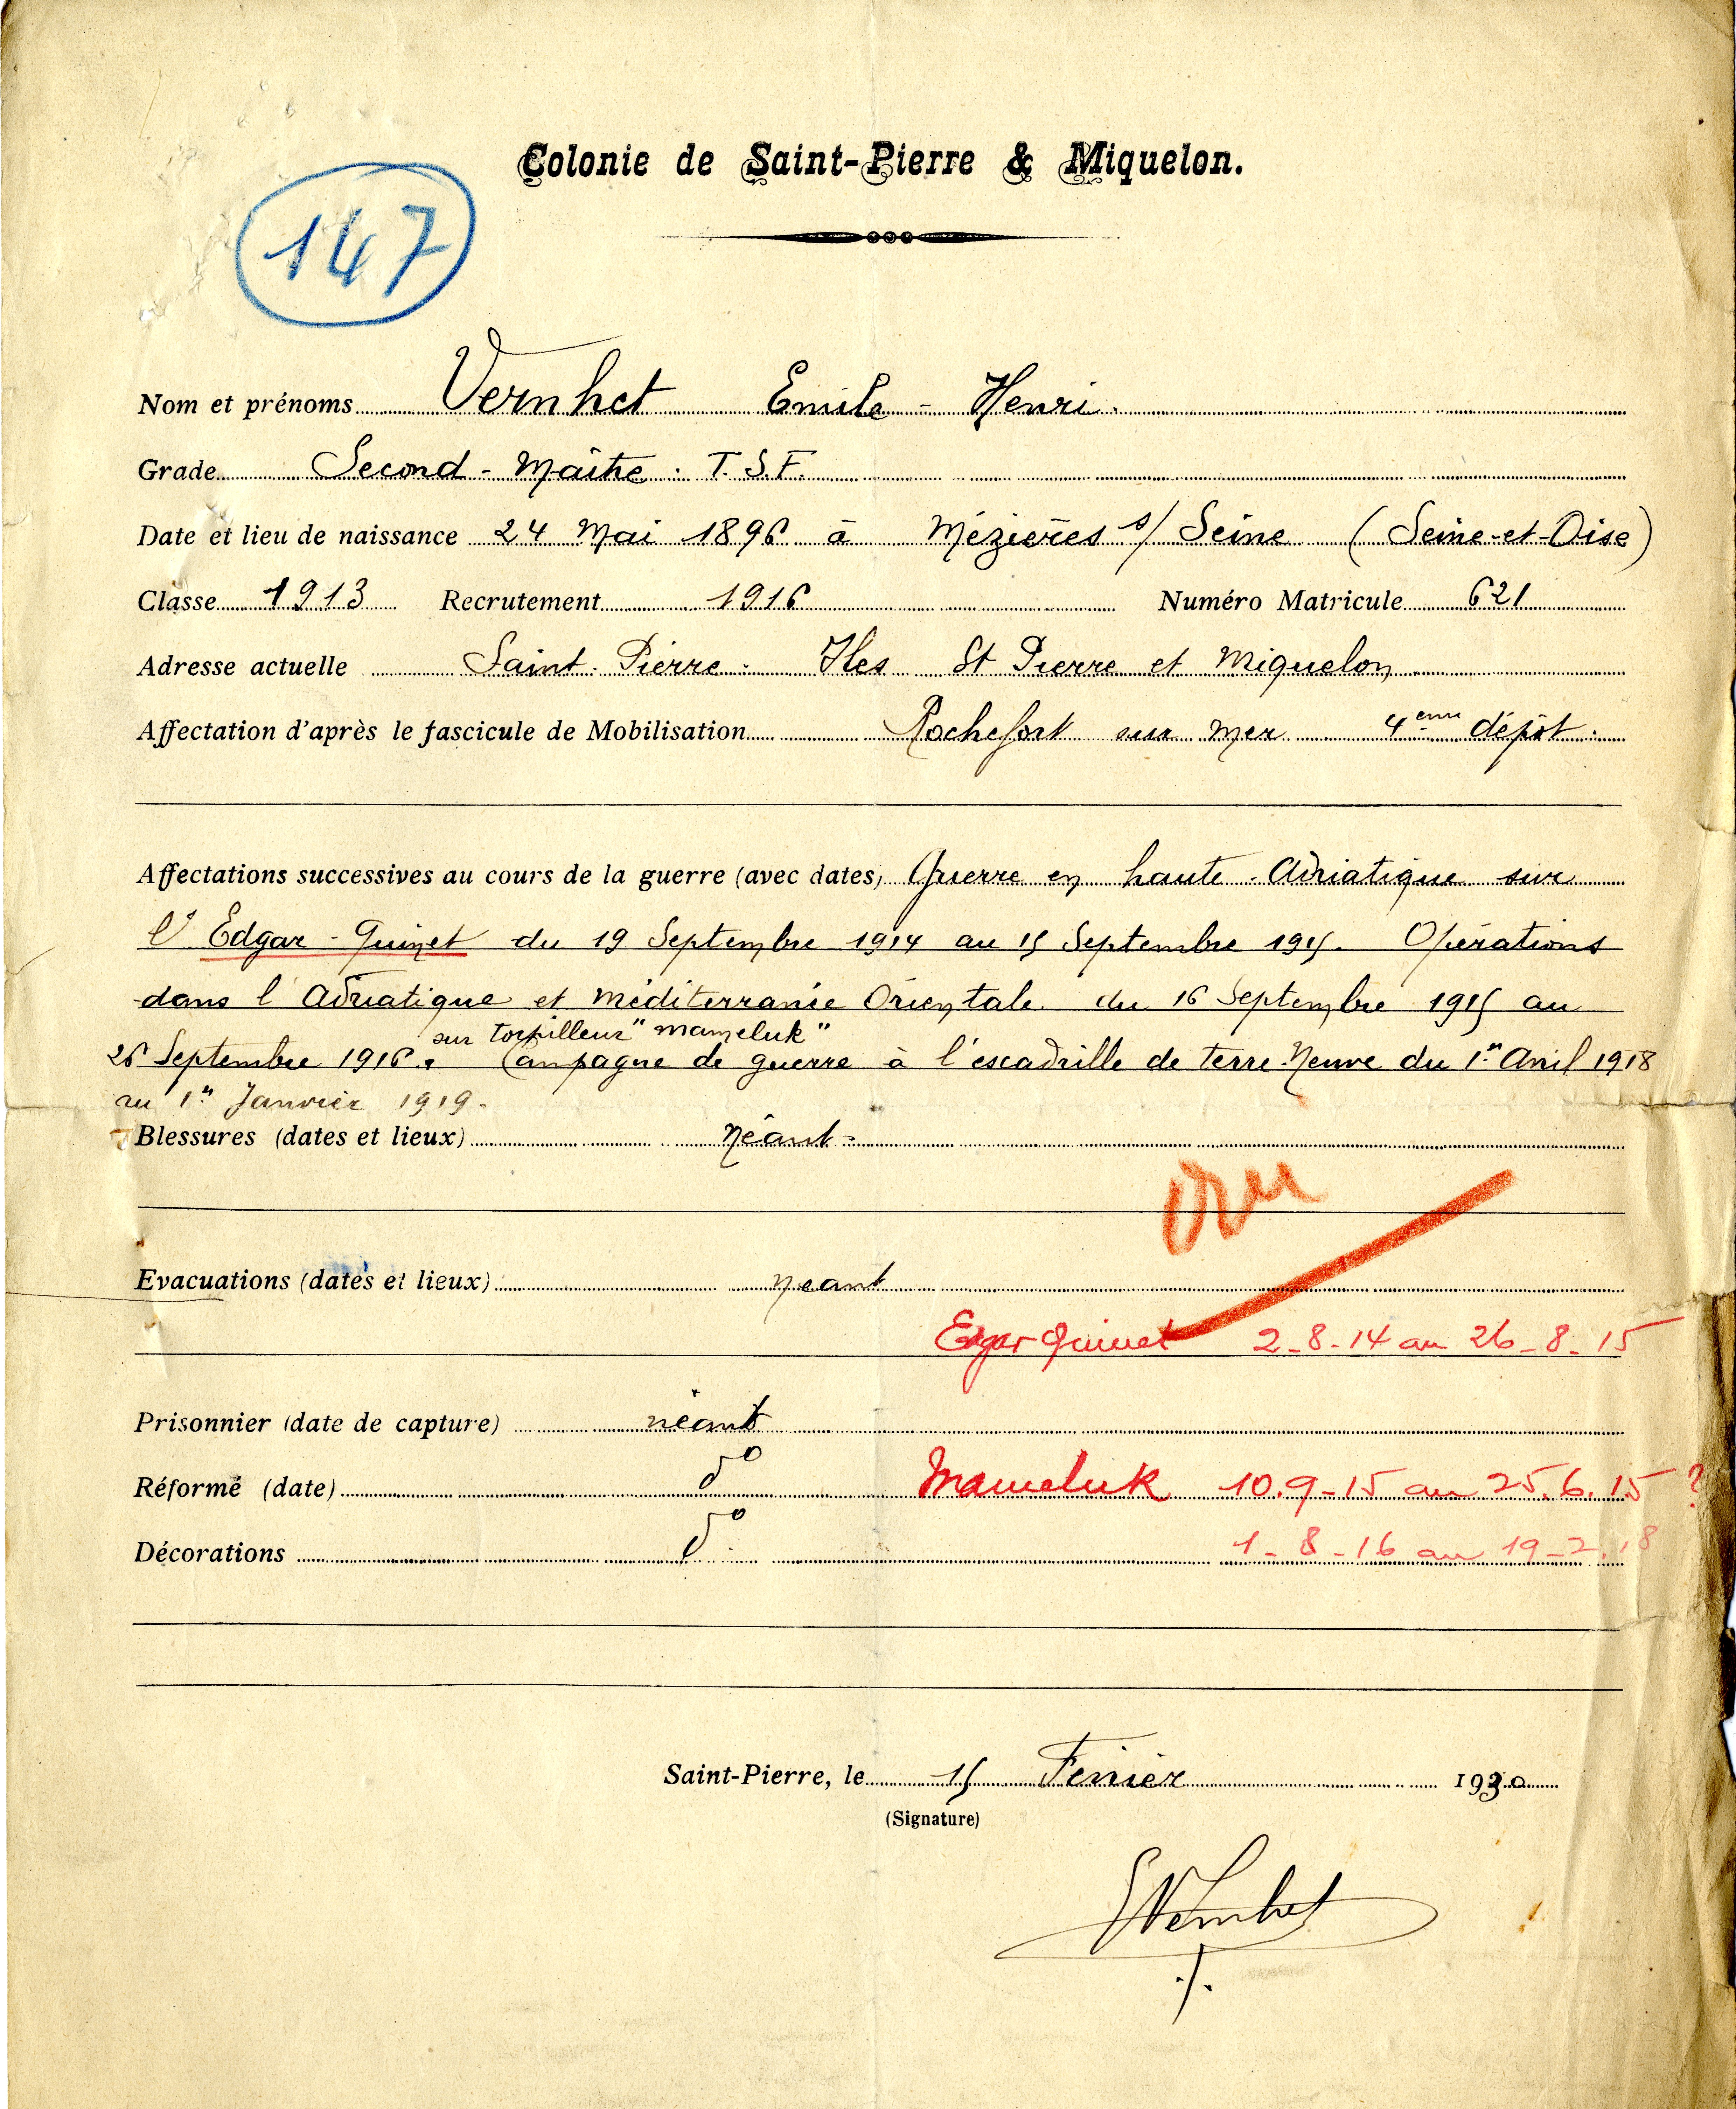 Colonie de Saint-Pierre & Miquelon.
147
Nom et prénoms Vernhet Emile - Henri.
Grade Second - Maître. T.S.F.
Date et lieu de naissance 24 Mai 1896 à Mézières s/ Seine (Seine-et-Oise)
Classe 1913 Recrutement 1916 Numéro Matricule 621
Adresse actuelle Saint. Pierre. Iles St Pierre et Miquelon
Affectation d'après le fascicule de Mobilisation Rochefort sur mer 4eme dépôt.
Affectations successives au cours de la guerre (avec dates) Guerre en haute. Adriatique sur
l'Edgar-Quinet du 19 Septembre 1914 au 15 Septembre 1915. Opérations
dans l'Adriatique et Méditerranée Orientale du 16 Septembre 1915 au
sur torpilleur "Mameluk"
26 Septembre 1916. Campagne de guerre à l'escadrille de terre-Neuve du 1er Avril 1918
au 1er Janvier 1919.
Blessures (dates et lieux) Néant.
vu
Evacuations (dates et lieux) néant
Egar Quinet 2-8-14 au 26-8-15
Prisonnier (date de capture) néant
Réformé (date) do Mameluk 10.9-15 au 25.6.15 ?
Décorations do 1-8-16 au 19-2.18
Saint-Pierre, le 15 Février 1930
(Signature)
EVernhet